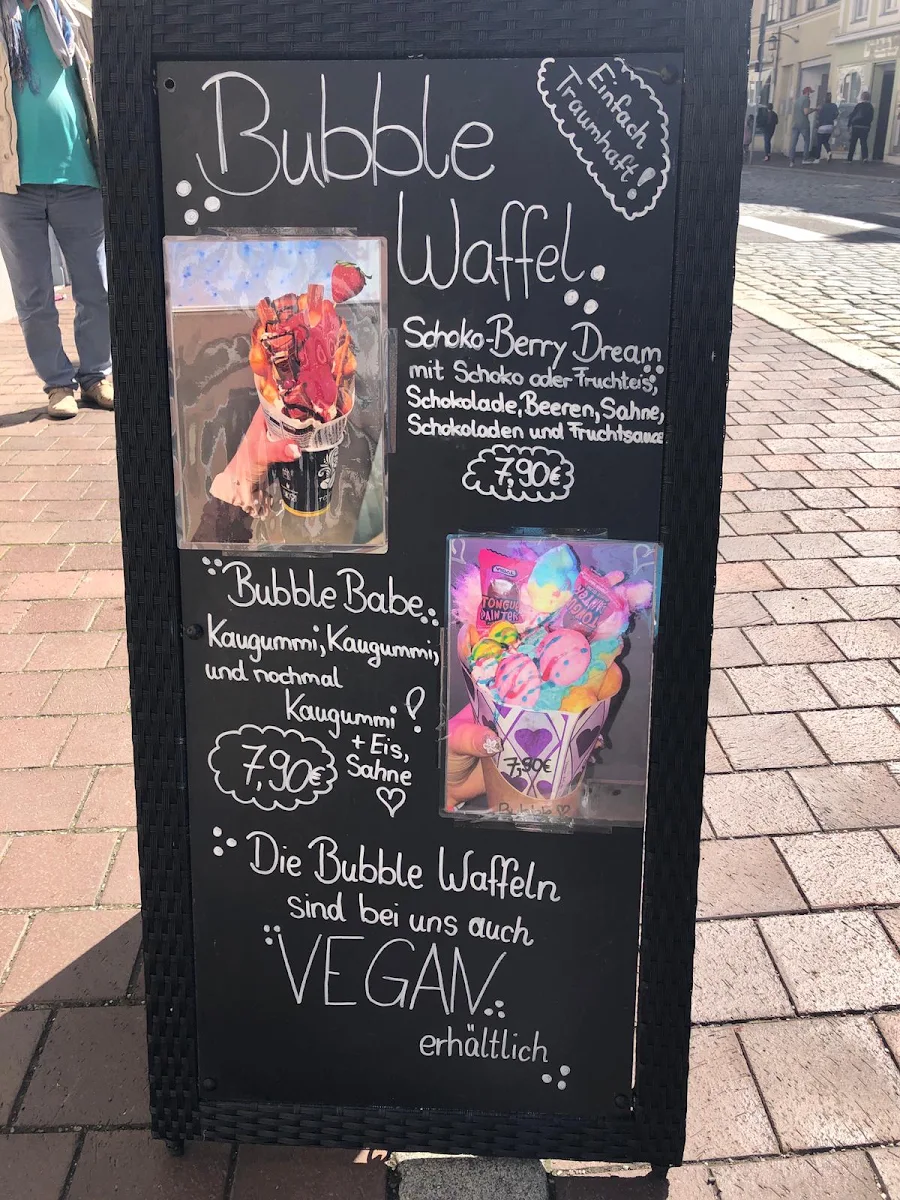 Bubble
Einfach
Traumhaft!
Waffel
Schoko-Berry Dream
mit Schoko oder Fruchteis,
Schokolade, Beeren, Sahne,
Schokoladen und Fruchtsauce
7,90€
Bubble Babe
Kaugummi, Kaugummi,
und nochmal
Kaugummi!
+ Eis,
Sahne
7,90€
TONGUE
PAINTER
7,90€
Bubble
Die Bubble Waffeln
sind bei uns auch
VEGAN
erhältlich